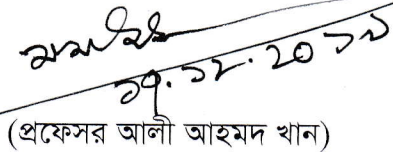 ১৭.১২.২০১৯
(প্রফেসর আলী আহমদ খান)